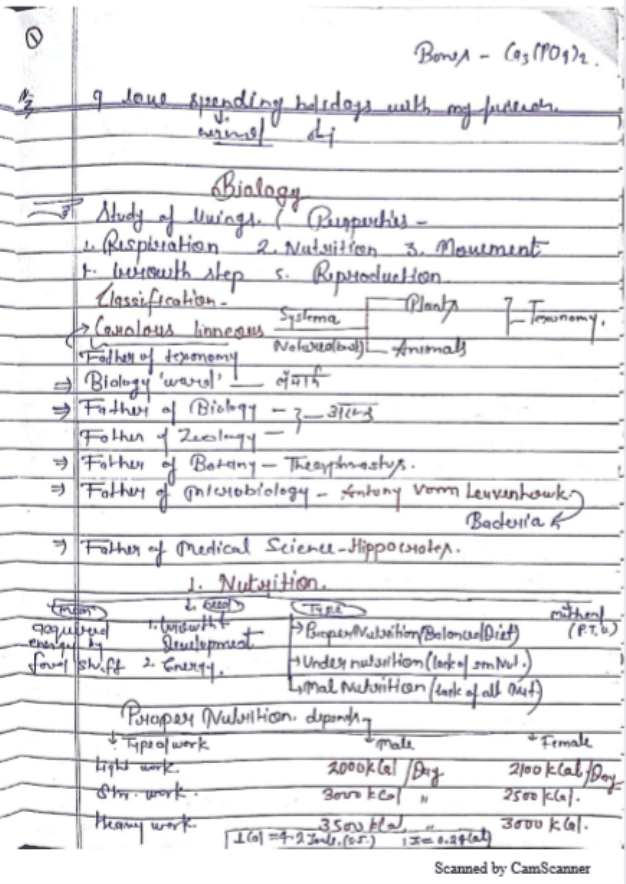 ①
Bones - Ca3(PO4)2.
I love spending holidays with my
Biology
Study of livings. ( Properties -
1. Respiration 2. Nutrition 3. Movement
4. Growth step 5. Reproduction
Classification -
Carolous linneous Systema Plant Taxonomy.
Natured(book) Animals
Father of texonomy
⇒ Biology 'word' — लैमार्क
⇒ Father of Biology - अरस्तु
Father of Zoology -
⇒ Father of Botany - Theophrastus.
⇒ Father of microbiology - Antony Vonn Leuvenhowk
Bacteria
⇒ Father of Medical Science - Hippocrates.
1. Nutrition.
mean 2. need Type method
acquired 1. Growth & → Proper Nutrition/Balanced Diet) (P.T.O)
energy by Development
food stuff 2. Energy. → Under nutrition (lack of sm Nut.)
→ Mal Nutrition (lack of all Nut)
Proper Nutrition. depends
↓ Type of work ↓ Male ↓ Female
Light work. 2000 kCal /Day 2100 kCal /Day
Str. work. 3000 kCal " 2500 kCal.
Heavy work. 3500 kCal " 3000 kCal.
1 Cal = 4.2 Joule. (S.I.) 1J = 0.24 Cal
Scanned by CamScanner